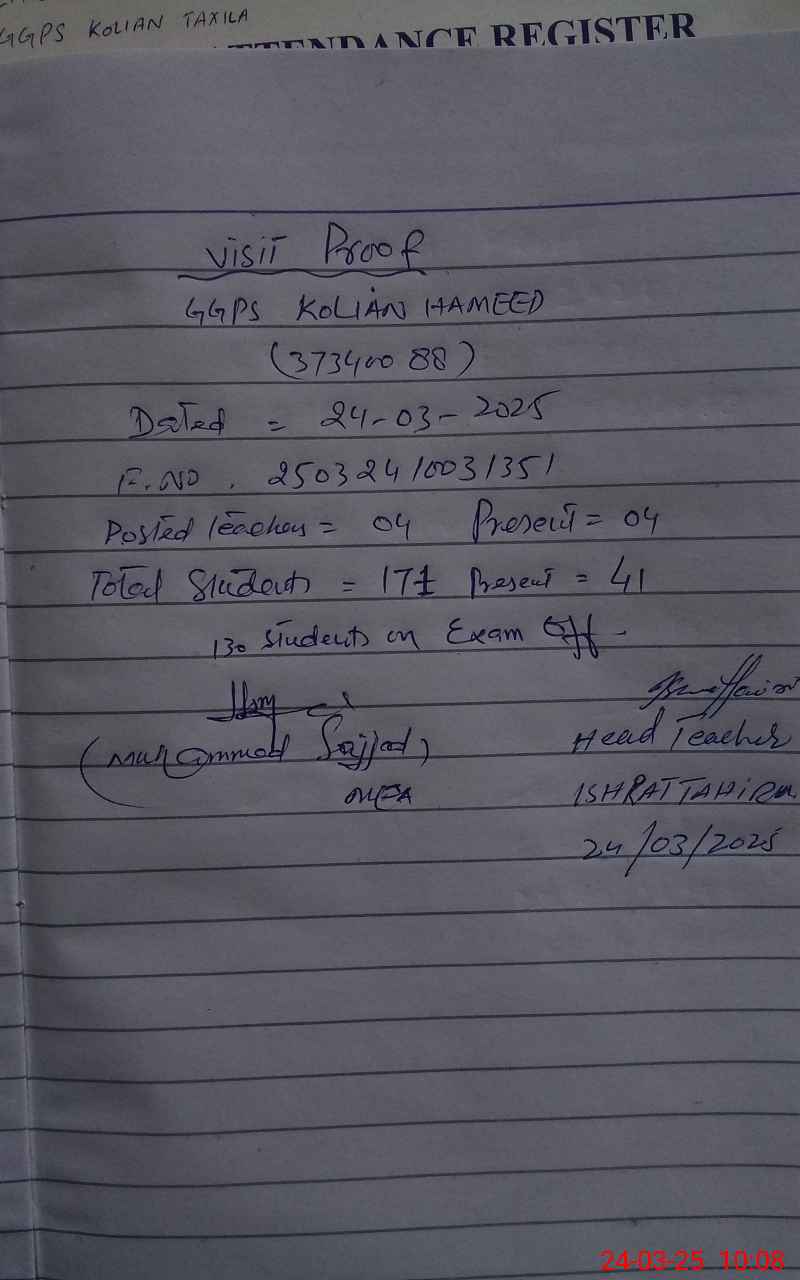 GGPS KOLIAN TAXILA
ATTENDANCE REGISTER
Visit Proof
GGPS KOLIAN HAMEED
(37340088)
Dated = 24-03-2025
F.NO. 25032410031351
Posted Teachers = 04 Present = 04
Total Students = 171 Present = 41
130 Students on Exam Off -
(Muhammad Sajjad)
Head Teacher
MEA
ISHRAT TAHIRA
24/03/2025
24-03-25 10:08